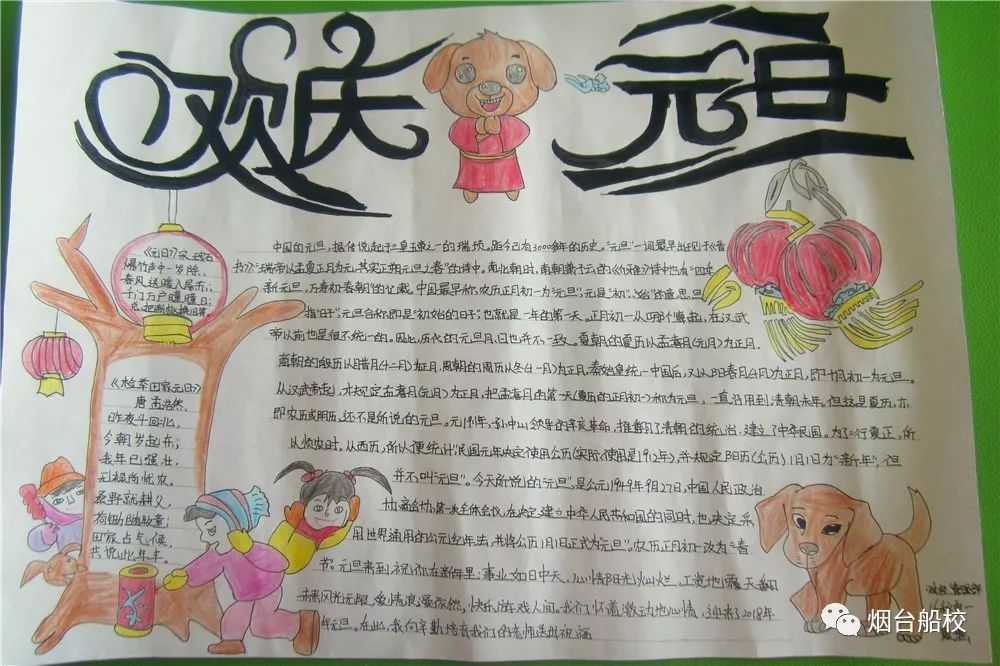 欢庆
元旦
《元日》宋 王安石
爆竹声中一岁除、
春风送暖入屠苏;
千门万户曈曈日;
总把新桃换旧符
《田家元日》
唐 孟浩然、
昨夜斗回北,
今朝岁起东;
我年已强壮,
无禄尚忧农。
桑野就耕父,
荷锄随牧童;
田家占气候,
共说此年丰。
中国的元旦,据传说起于三皇五帝之一的瑞顼。距今已有3000多年的历史。"元旦"一词最早出现于《晋
书》:"瑞帝以孟夏正月为元,其实正朔元旦之春"的诗中。南北朝时,南朝萧子云的《介雅》诗中也有"四年
新元旦,万寿初春朝"的记载。中国最早称农历正月初一为"元旦",元是"初"、"始"的意思,旦
指"日子",元旦合称即是"初始的日子",也就是一年的第一天。正月初一从哪个算起,在汉武
帝以前也是很不统一的。因此,历代的元旦月、日也并不一致。夏朝的夏历以孟喜月(元月)为正月,
商朝的殷历以腊月(十二月)为正月,周朝的周历以冬(十一月)为正月。秦始皇统一中国后,又以阳春月(十月)为正月,即十月初一为元旦。
从汉武帝起,才规定孟喜月(元月)为正月,把孟喜月的第一天(夏历的正月初一)称为元旦,一直沿用到清朝末年。但这是夏历,亦
即农历或阴历,还不是所说的元旦。元1911年,孙中山领导的辛亥革命,推翻了清朝的统治,建立了中华民国。为了"行夏正,所
以顺农时,从西历,所以便统计",民国元年决定使用公历(实际使用是1912年),并规定阳历(公历)1月1日为"新年",但
并不叫"元旦"。今天所说的"元旦",是公元1949年9月27日,中国人民政治
协商会议第一次全体会议,在决定建立中华人民共和国的同时,也决定采
用世界通用的公元纪年法,并将公历1月1日正式为"元旦"。农历正月初一改为"春
节"。元旦来到,祝你在新年里:事业如日中天,心情阳光灿烂,工资地覆天翻
未来风光无限,爱情浪漫依然,快乐游戏人间。我们怀着激动地心情,迎来了2018年
年元旦。在此,我向辛勤培育我们的老师送出祝福
烟台船校